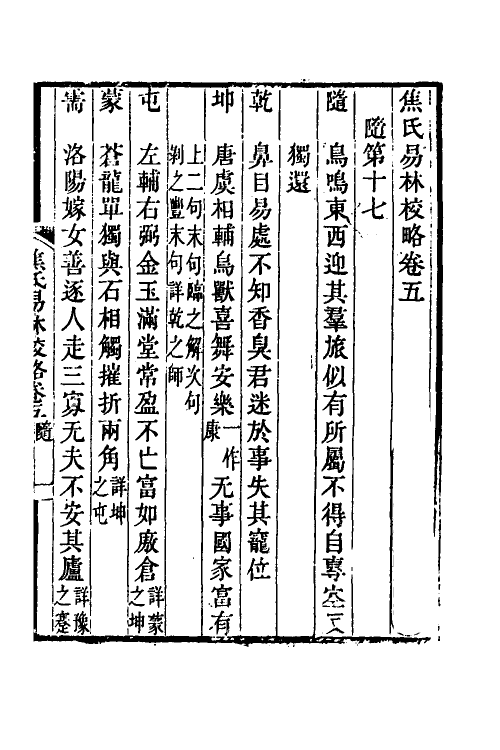 焦氏易林校略卷五
隨第十七
隨　鳥鳴東西迎其羣旅似有所屬不得自專空
獨還
乾　鼻目易處不知香臭君迷於事失其寵位
坤　唐虞相輔鳥獸喜舞安樂一作康无事國家富有
上二句末句臨之解次句
剝之豐末句詳乾之師
屯　左輔右弼金玉滿堂常盈不亡富如廒倉詳蒙之坤
蒙　蒼龍單獨與石相觸摧折兩角詳坤之屯
需　洛陽嫁女善逐人走三寡无夫不安其廬詳豫之蹇
焦氏易林校略卷五　隨　一